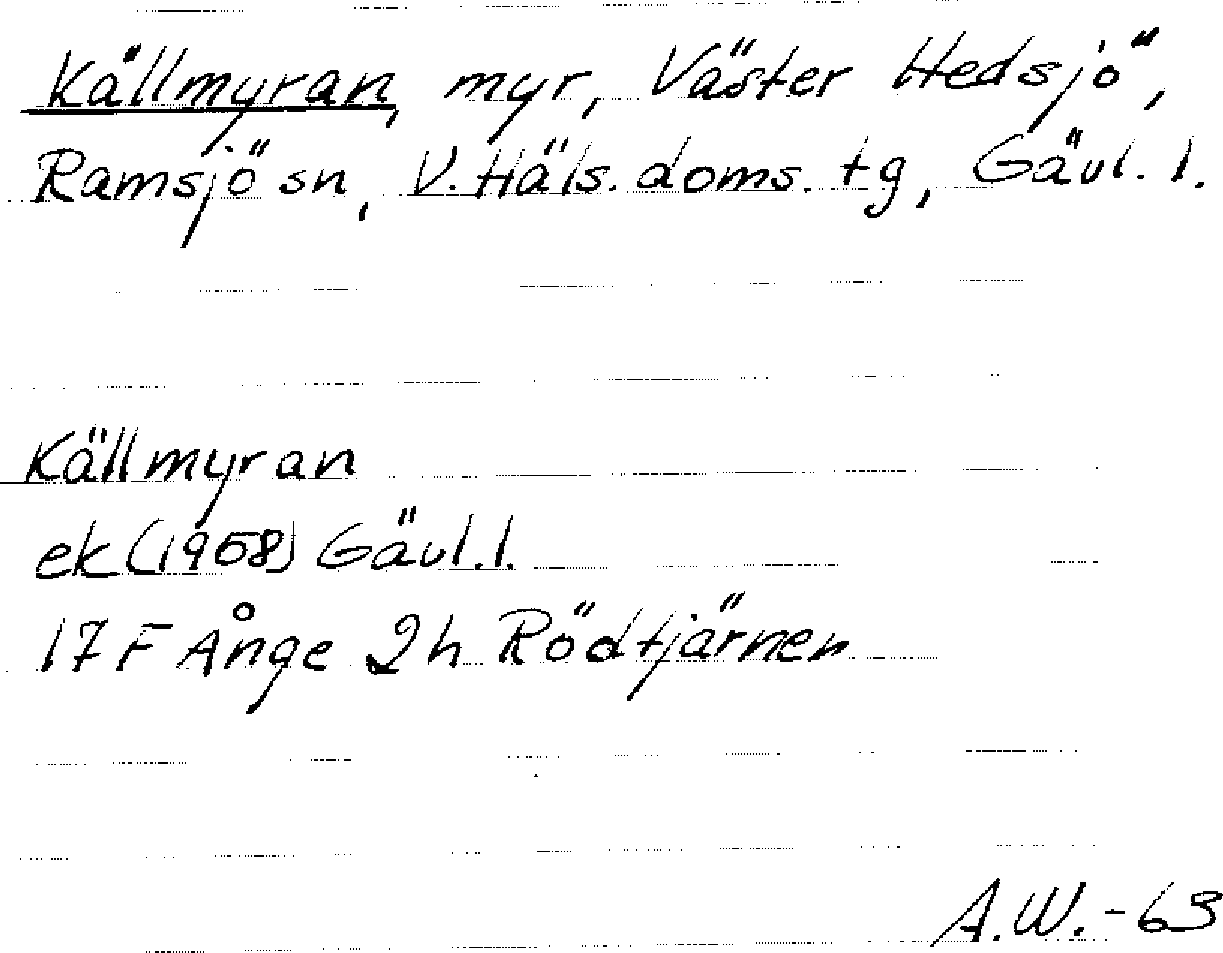 Källmyran, myr, Väster Hedsjö,
Ramsjö sn, V. Häls. doms. tg, Gävl. l.
Källmyran
ek (1958) Gävl. l.
17 F Ånge 2h Rödtjärnen
A.W. -63